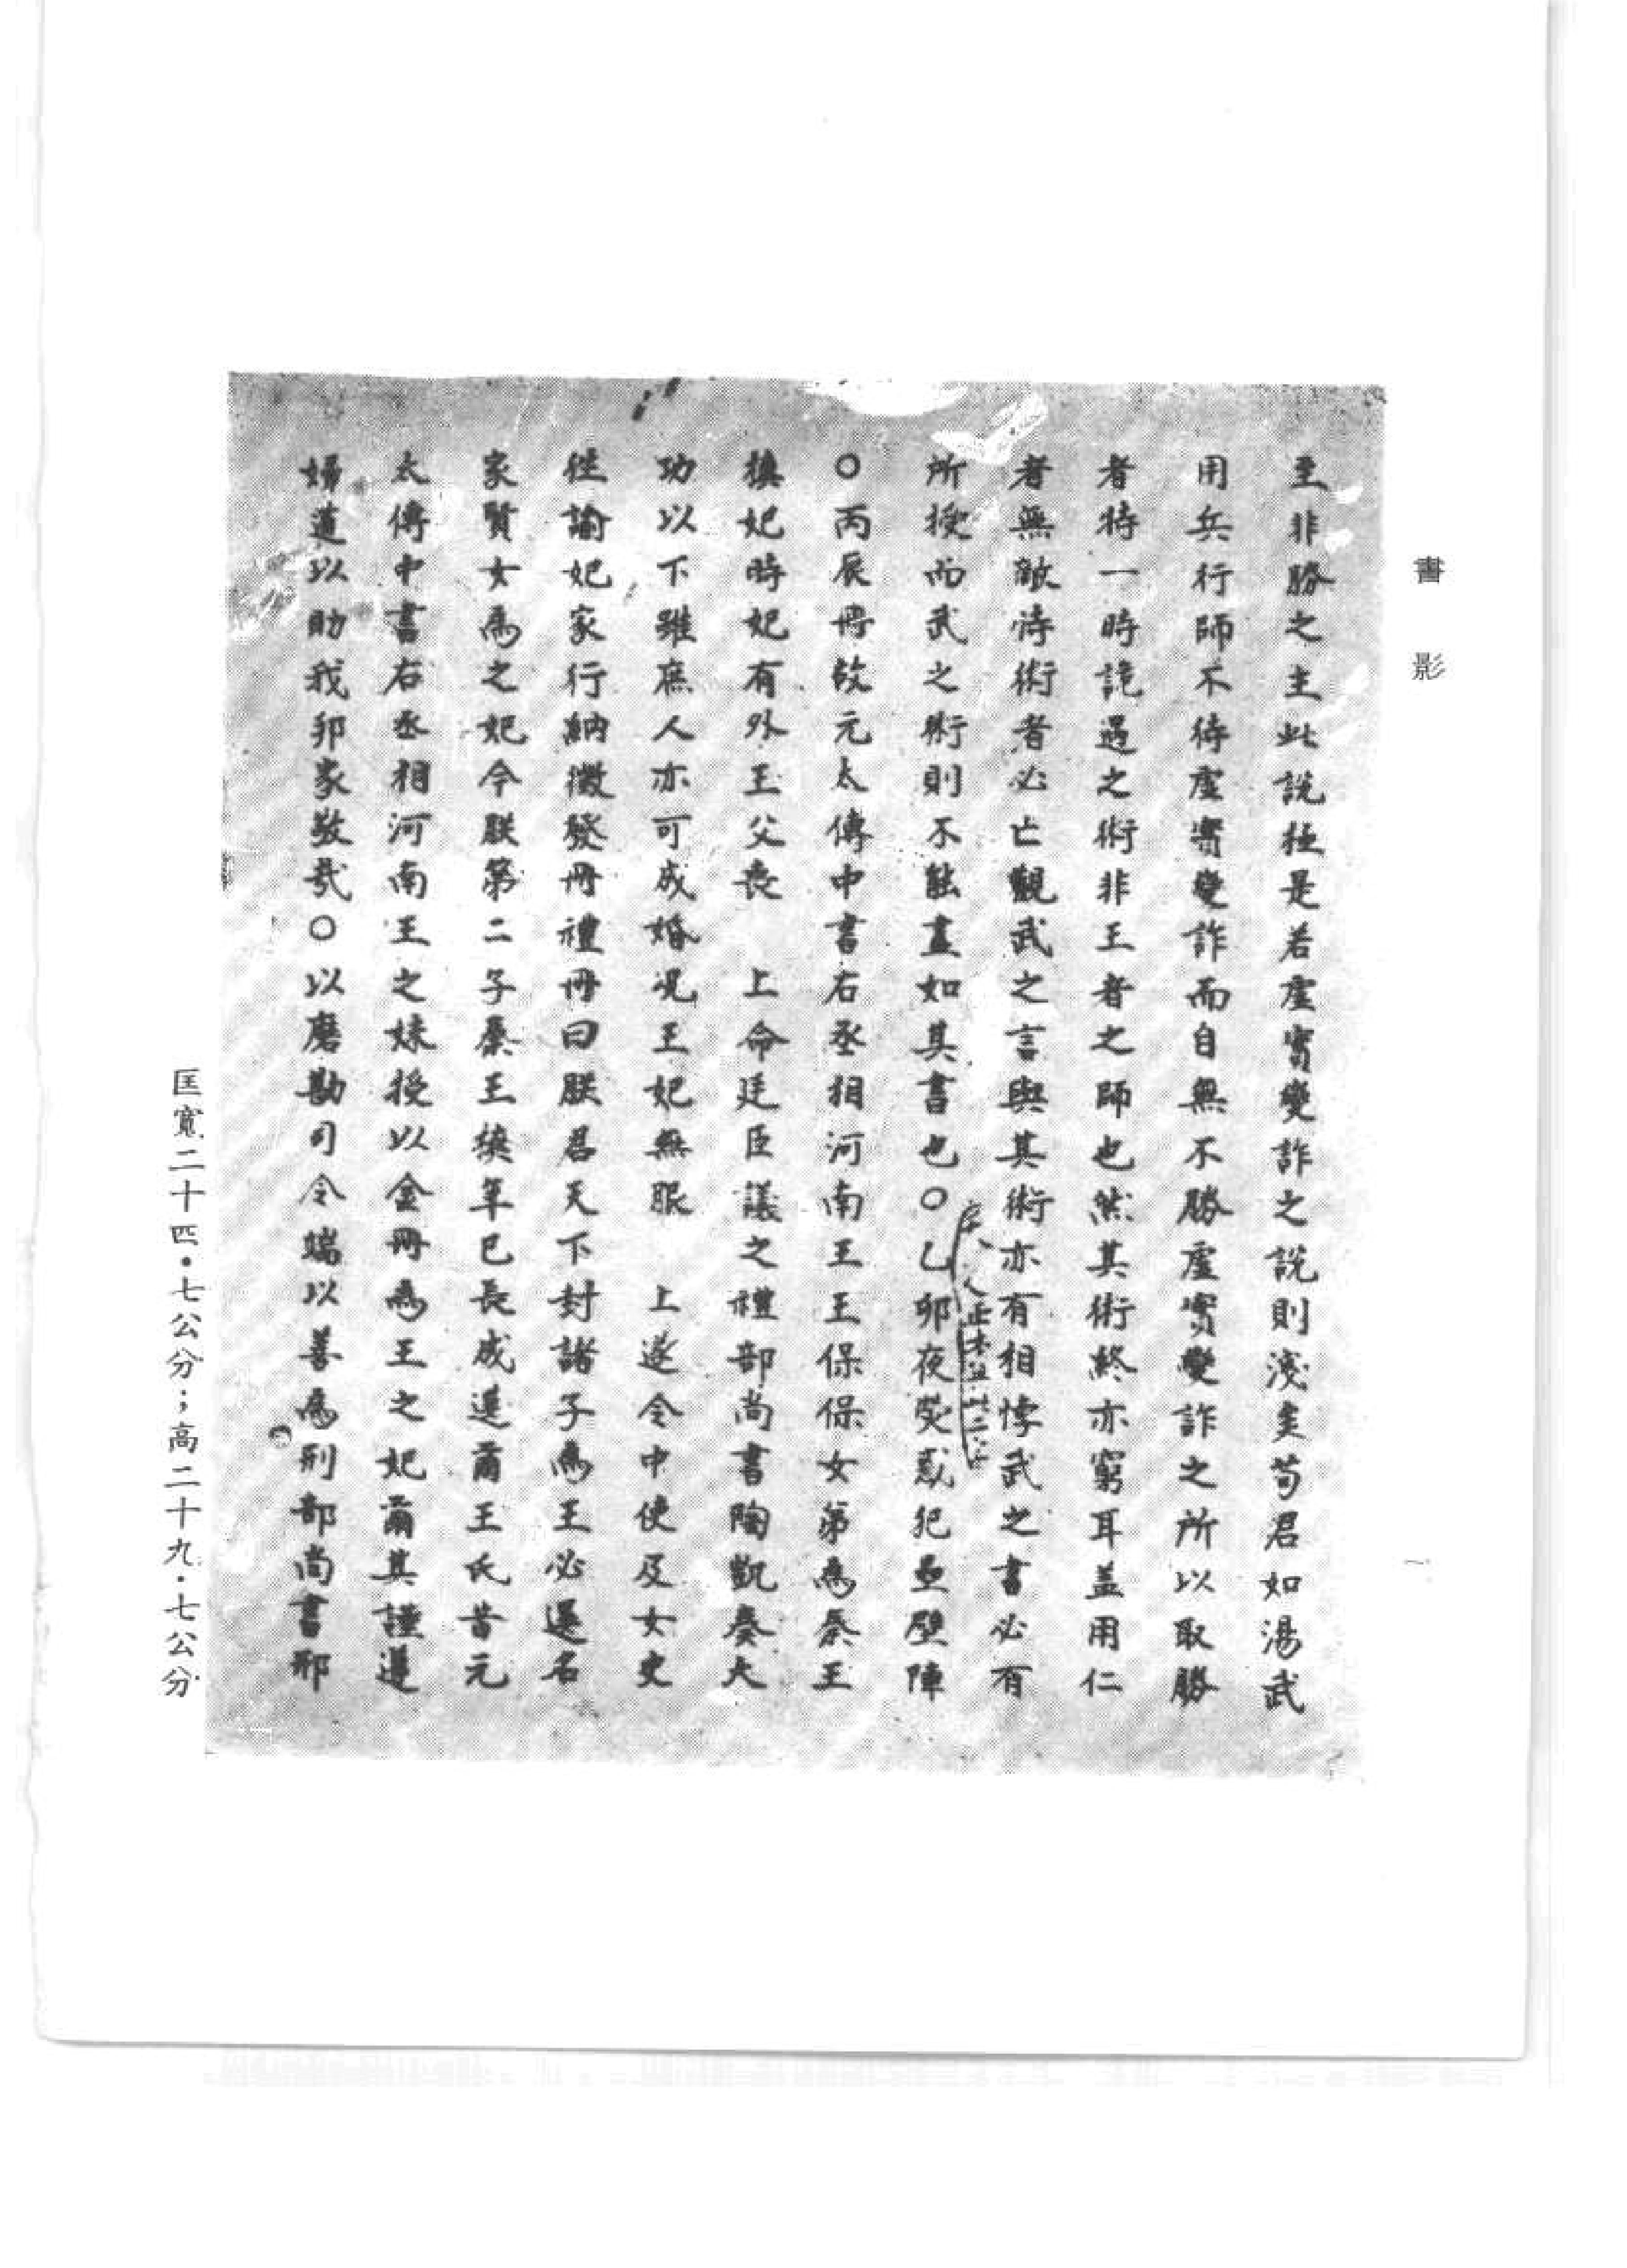 書影
一
至非勝之主此說極是若虛實變詐之說則淺矣苟君如湯武
用兵行師不待虛實變詐而自無不勝虛實變詐之所以取勝
者特一時詭遇之術非王者之師也然其術終亦窮耳蓋用仁
者無敵恃術者必亡觀武之言與其術亦有相悖武之書必有
所授而武之術則不能盡如其書也○乙卯夜熒惑犯壘壁陣
○丙辰冊故元太傅中書右丞相河南王王保保女弟為秦王
樉妃時妃有外王父喪　上命廷臣議之禮部尚書陶凱奏大
功以下雖庶人亦可成婚況王妃無服　上遂令中使及女史
徃諭妃家行納徵發冊禮冊曰朕君天下封諸子為王必選名
家賢女為之妃今朕第二子秦王樉年已長成選爾王氏昔元
太傅中書右丞相河南王之妹授以金冊為王之妃爾其謹遵
婦道以助我邦家敬哉○以磨勘司令端以善為刑部尚書邢
匡寬二十四·七公分;高二十九·七公分